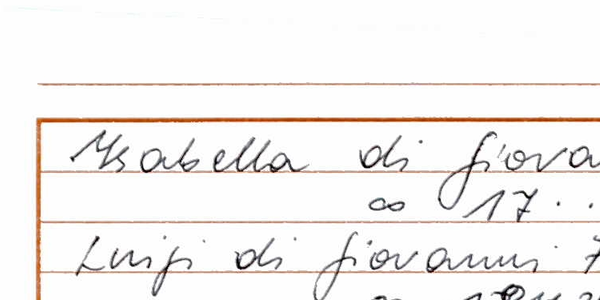 Ysabella di giova
∞ 17..
Luigi di giovanni